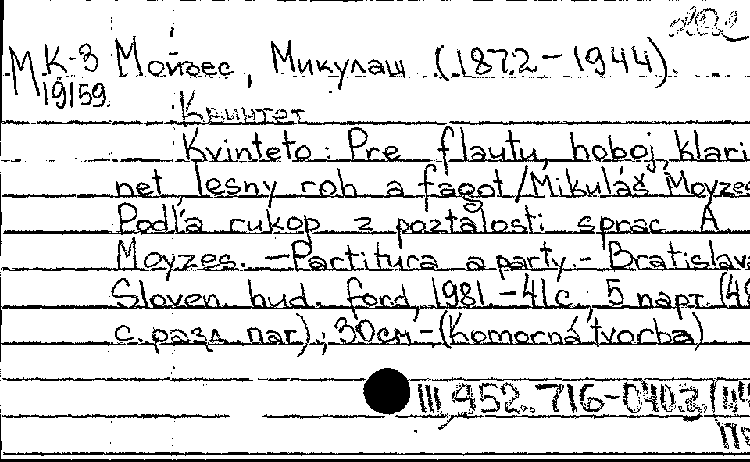 МК-3 Мойзес, Микулаш (1872-1944).
19159
Квинтет
Kvinteto: Pre flautu, hoboj, klari
net, lesny roh a fagot/Mikuláš Moyzes
Podľa rukop z poztalosti sprac A
Moyzes. - Partitura a party. - Bratislava
Sloven. hud. ford, 1981. - 41с.; 5 парт. (40
с. разд. паг).; 30см - (Komorná tvorba)
952. 716-040.3